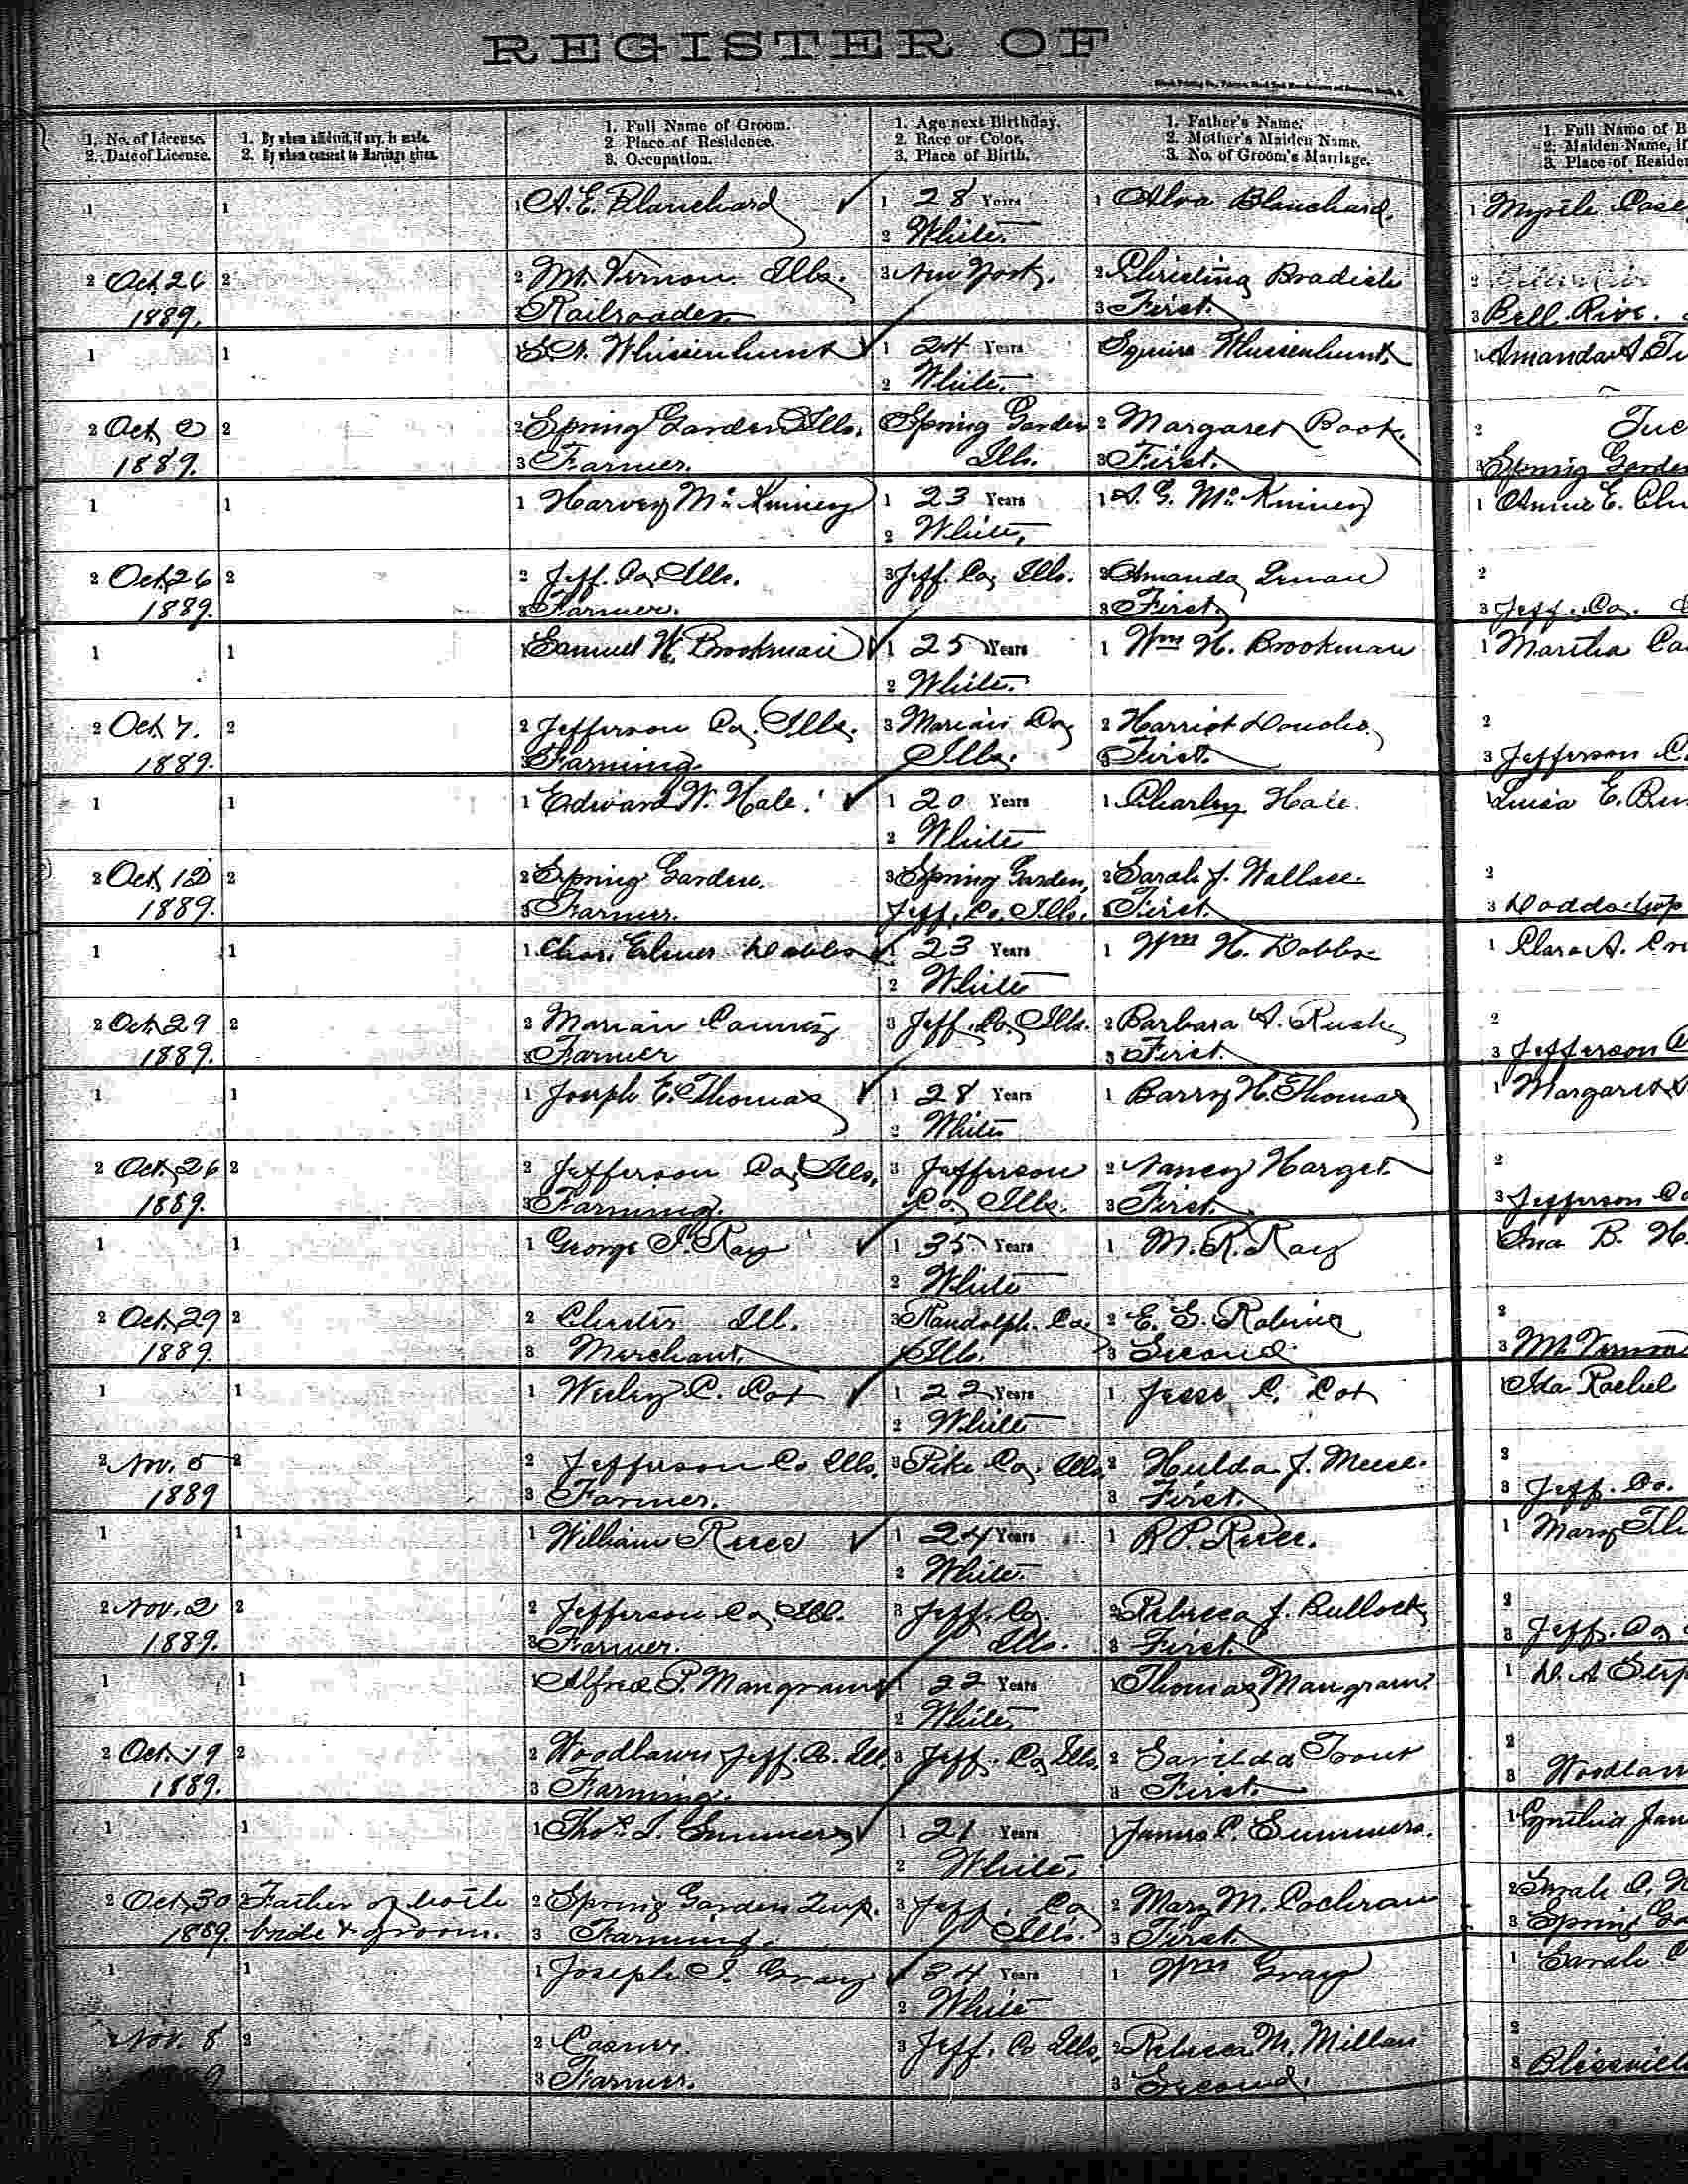 REGISTER OF
1. No. of License.
2. Date of License.
1. By whom affidavit, if any, is made.
2. By whom consent to Marriage given.
1. Full Name of Groom.
2. Place of Residence.
3. Occupation.
1. Age next Birthday.
2. Race or Color.
3. Place of Birth.
1. Father's Name.
2. Mother's Maiden Name.
3. No. of Groom's Marriage.
1. Full Name of B
2. Maiden Name, if
3. Place of Reside
1 1 1 A. E. Blanchard 1 28 Years 1 Alva Blanchard 1 Myrtle Case
2 White
2 Oct. 26 2 2 Mt. Vernon Ills. 3 New York. 2 Bradish 2
1889. 3 Railroader 3 First. 3 Bell Rive.
1 1 Whissenhunt 1 24 Years Squire Whissenhunt 1 Amanda A.
2 White
2 Oct. 2 2 Spring Garden Ills. Spring Garden 2 Margaret Book. 2
1889. 3 Farmer. Ills. 3 First. 3 Spring Garden
1 1 1 Harvey McKinney 1 23 Years 1 A. G. McKinney 1 Annie E.
2 White,
2 Oct. 26 2 2 Jeff. Co. Ills. 3 Jeff. Co. Ills. 2 Amanda 2
1889. 3 Farmer. 3 First. 3 Jeff. Co.
1 1 1 Samuel W. Brookman 1 25 Years 1 Wm H. Brookman 1 Martha
2 White.
2 Oct. 7. 2 2 Jefferson Co. Ills. 3 Marion Co. 2 Harriet 2
1889. 3 Farming. Ills. 3 First. 3 Jefferson
1 1 1 Edward W. Hale. 1 20 Years 1 Charley Hale. 1 Luisa E.
2 White
2 Oct. 12 2 2 Spring Garden. 3 Spring Garden, 2 Sarah J. Wallace. 2
1889. 3 Farmer. Jeff. Co. Ills. 3 First. 3 Dodds
1 1 1 Chas. Elmer Dobbs 1 23 Years 1 Wm H. Dobbs 1 Clara A.
2 White
2 Oct. 29 2 2 Marion County 3 Jeff. Co. Ills. 2 Barbara A. Rush 2
1889. 3 Farmer 3 First. 3 Jefferson
1 1 1 Joseph E. Thomas 1 28 Years 1 Barry H. Thomas 1 Margaret
2 White
2 Oct. 26 2 2 Jefferson Co. Ills. 3 Jefferson 2 Nancy Harget. 2
1889. 3 Farming. Co. Ills. 3 First. 3 Jefferson Co
1 1 1 George I. Ray 1 35 Years 1 M. R. Ray 1 Ina B. H.
2 White
2 Oct. 29 2 2 Chester Ill. 3 Randolph. Co. 2 E. G. 2
1889. 3 Merchant. Ills. 3 Second. 3 Mt. Vernon
1 1 1 Wesley C. Cox 1 22 Years 1 Jesse C. Cox 1 Ida Rachel
2 White
2 Nov. 5 2 2 Jefferson Co Ills. 3 Pike Co. Ills. 2 Hulda J. 2
1889 3 Farmer. 3 First. 3 Jeff. Co.
1 1 1 William Reece 1 24 Years 1 R. P. Reece. 1 Mary
2 White.
2 Nov. 2 2 2 Jefferson Co. Ill. 3 Jeff. Co. 2 Rebecca J. Bullock 2
1889. 3 Farmer. Ills. 3 First. 3 Jeff. Co.
1 1 1 Alfred P. Mangrum 1 22 Years 1 Thomas Mangrum 1
2 White
2 Oct. 19 2 2 Woodlawn Jeff. Co. Ill. 3 Jeff. Co. Ills. 2 Savilda Trout 2
1889. 3 Farming. 3 First. 3 Woodlaw
1 1 1 Thos. I. Summers 1 21 Years 1 James P. Summers. 1 Cynthia Jan
2 White.
2 Oct. 30 2 Father of both 2 Spring Garden Twp. 3 Jeff. Co 2 Mary M. Cochran 2 Sarah C.
1889. bride & groom. 3 Farming. Ills. 3 First. 3 Spring Ga
1 1 1 Joseph I. Gray 1 34 Years 1 Wm Gray 1 Sarah
2 White
Nov. 8 2 2 Casner. 3 Jeff. Co Ills. 2 2
3 Farmer. 3 Second. 3